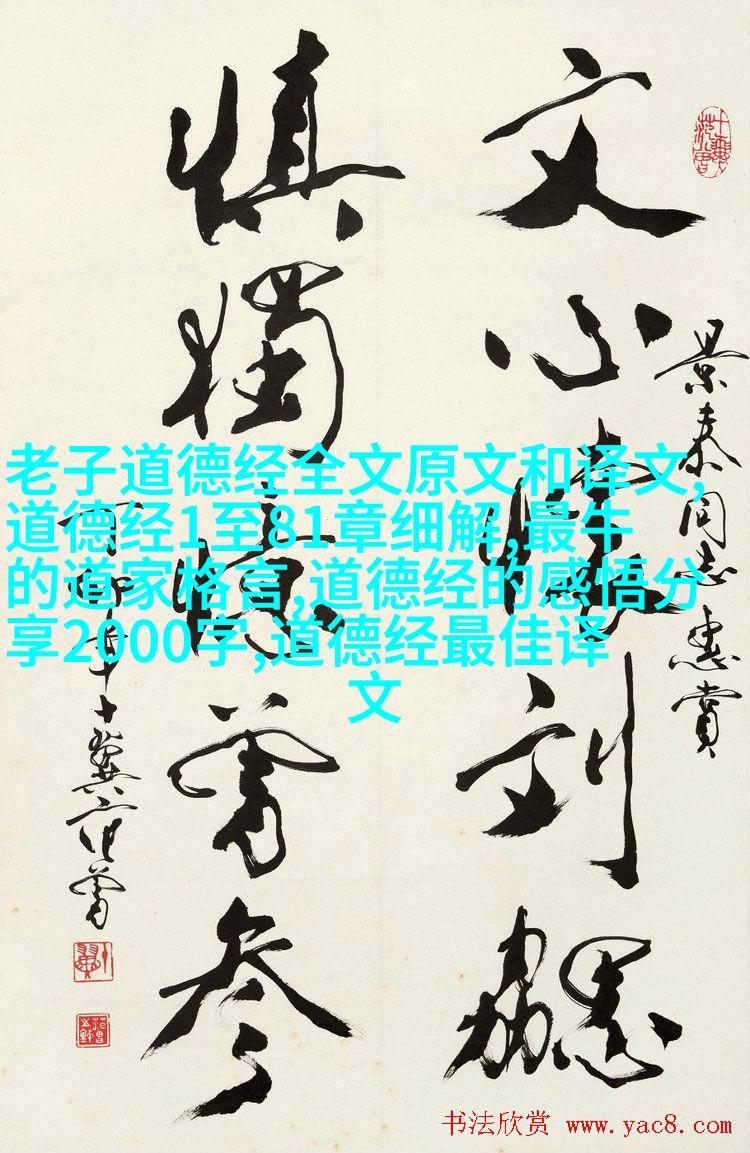 老子道德经全文原文和译文,
道德经1至81章细解,最牛
的道家格言,道德经的感悟分
享2000字,道德经最佳译
文
景泰同志惠賞
文心懷劉勰
慎獨憶曾參
十翼范曾
书法欣赏 www.yac8.com